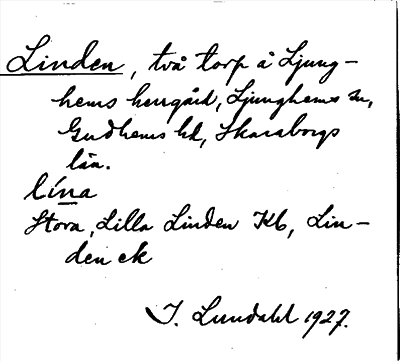 Linden, två torp å Ljung-
hems herrgård, Ljunghems sn,
Gudhems hd, Skaraborgs
län.
lína
Stora, Lilla Linden Kb, Lin-
den ek
J. Lundahl 1927.